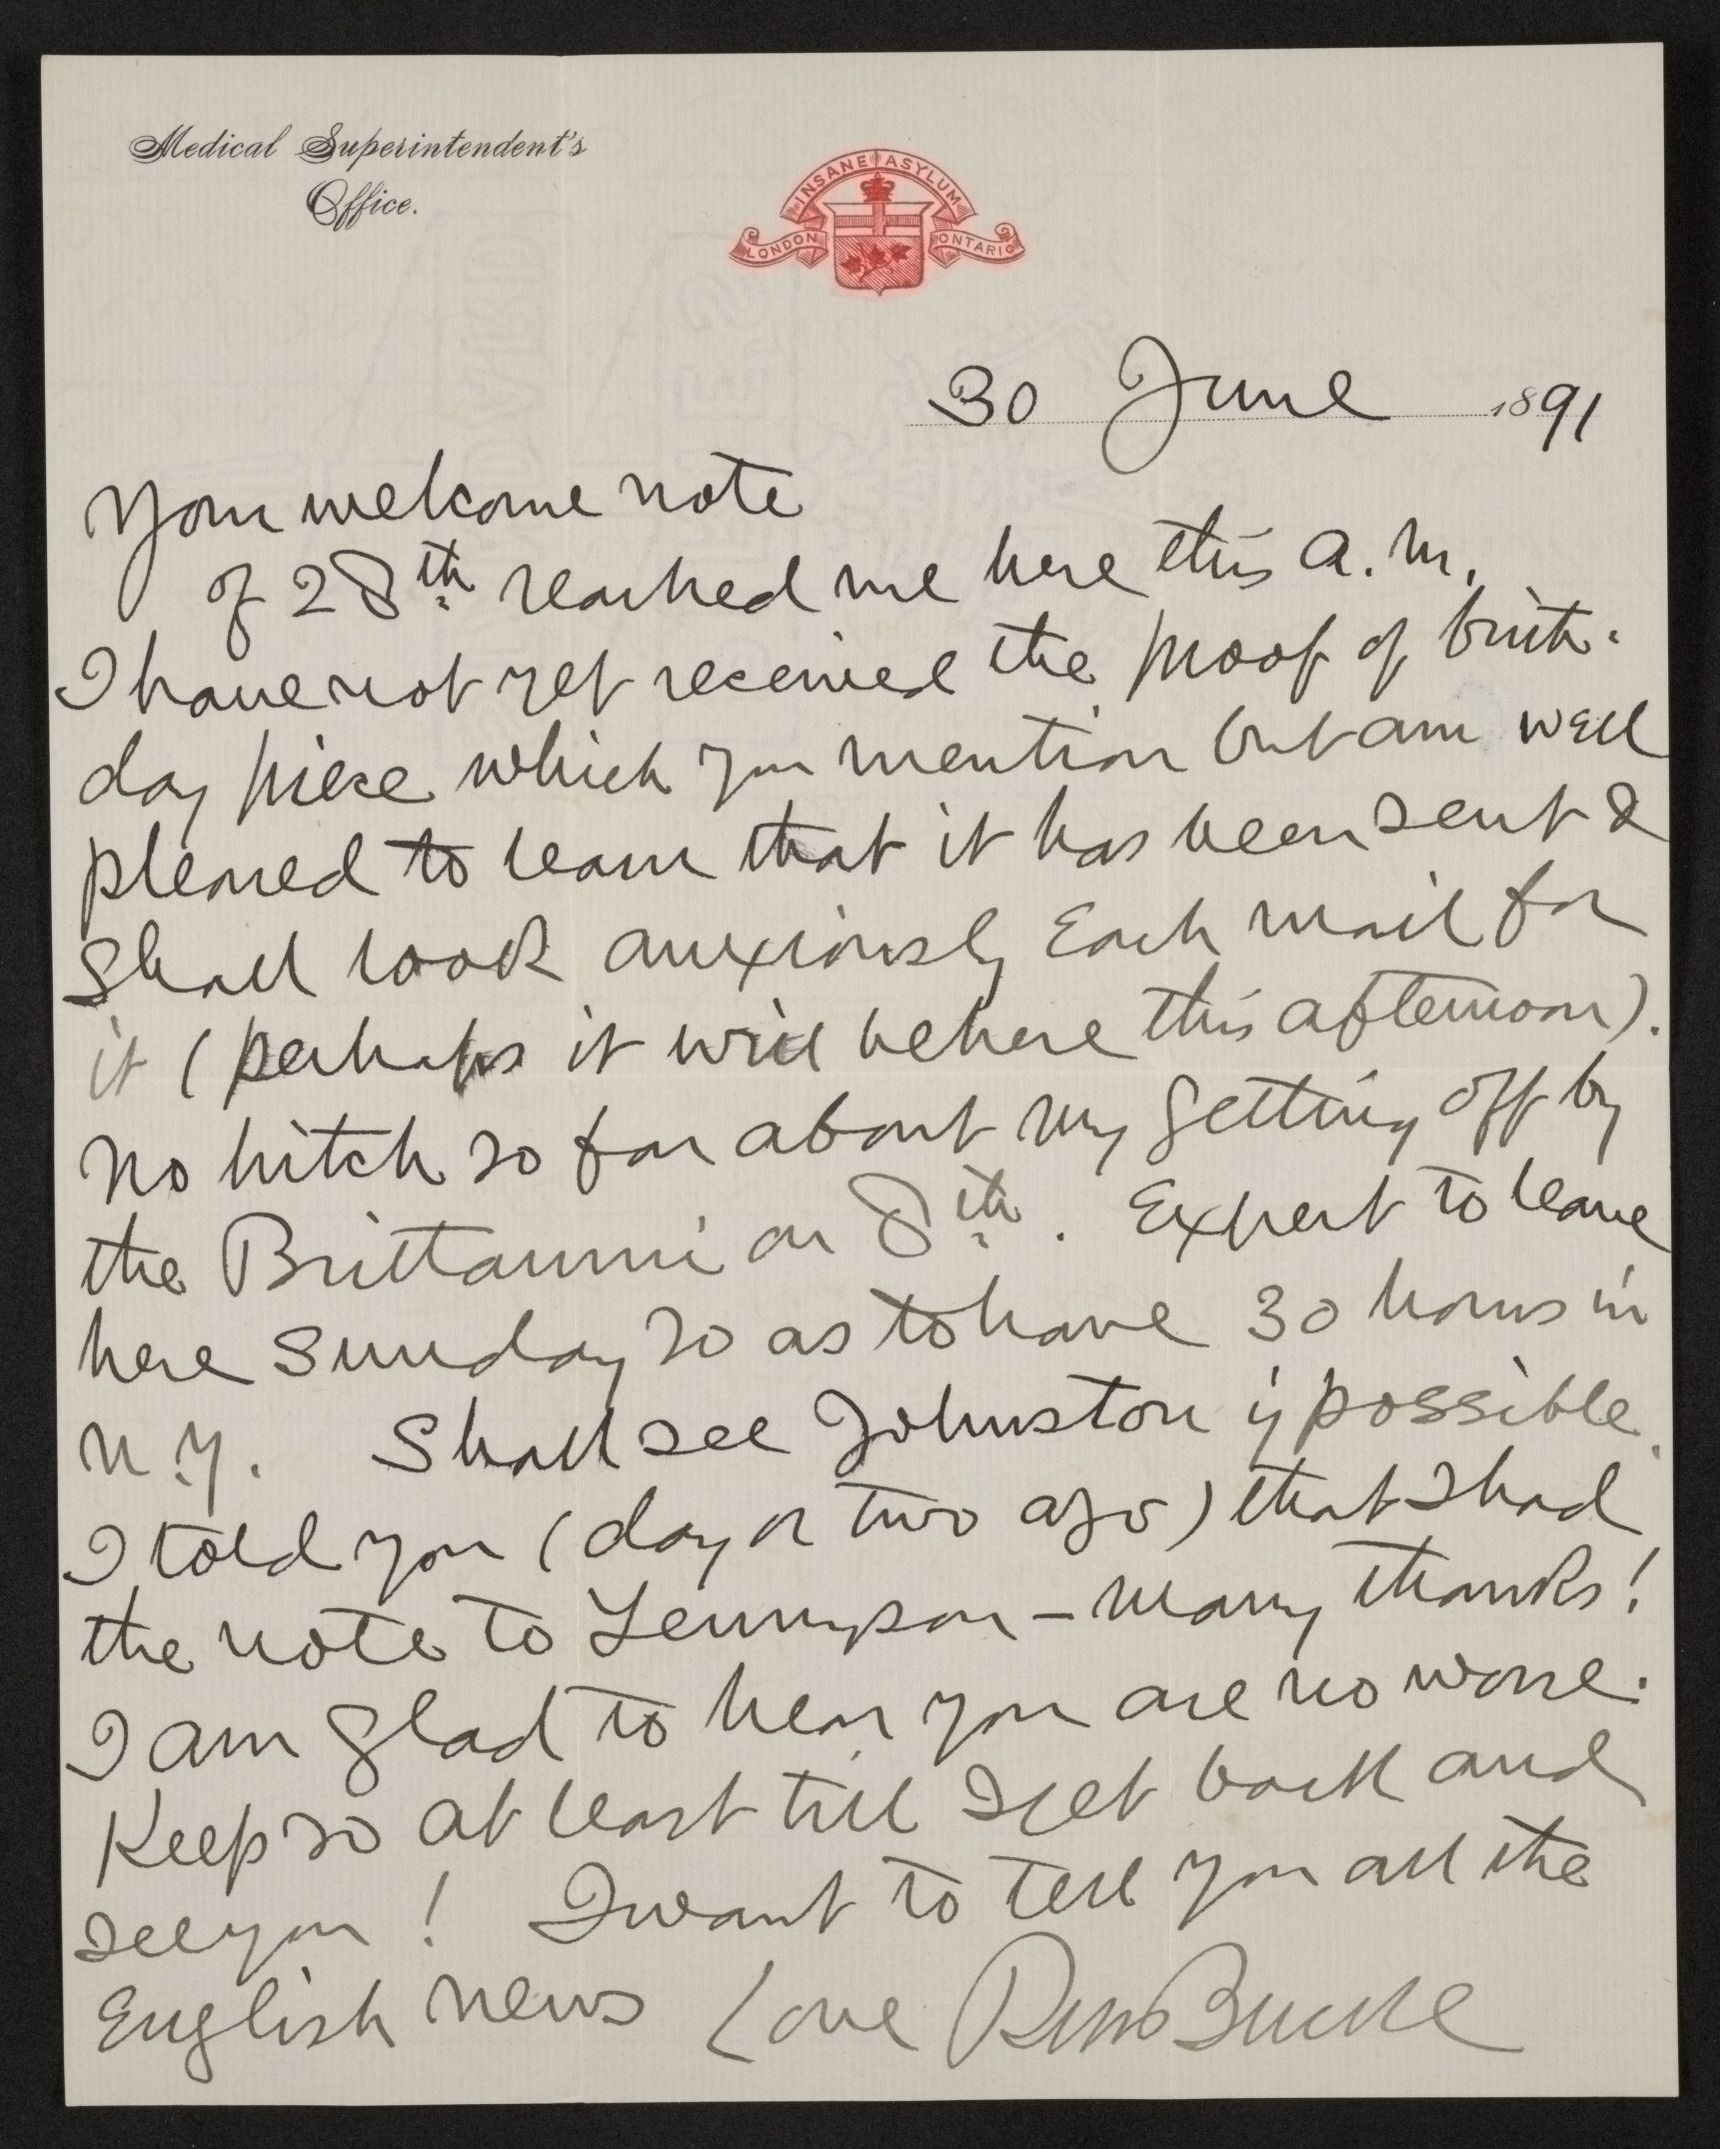 Medical Superintendent's
Office.
INSANE ASYLUM
LONDON ONTARIO
30 June 1891
Your welcome note
of 28th reached me here this a.m.
I have not yet received the proof of birth-
day piece which you mention but am well
pleased to learn that it has been sent &
shall look anxiously each mail for
it (perhaps it will be here this afternoon).
No hitch so far about my getting off by
the Brittannic on 8th. Expect to leave
here Sunday so as to have 30 hours in
N.Y. Shall see Johnston if possible.
I told you (day or two ago) that I had
the note to Tennyson – many thanks!
I am glad to hear you are no worse.
Keep so at least till I get back and
see you! I want to tell you all the
English news Love RM Bucke